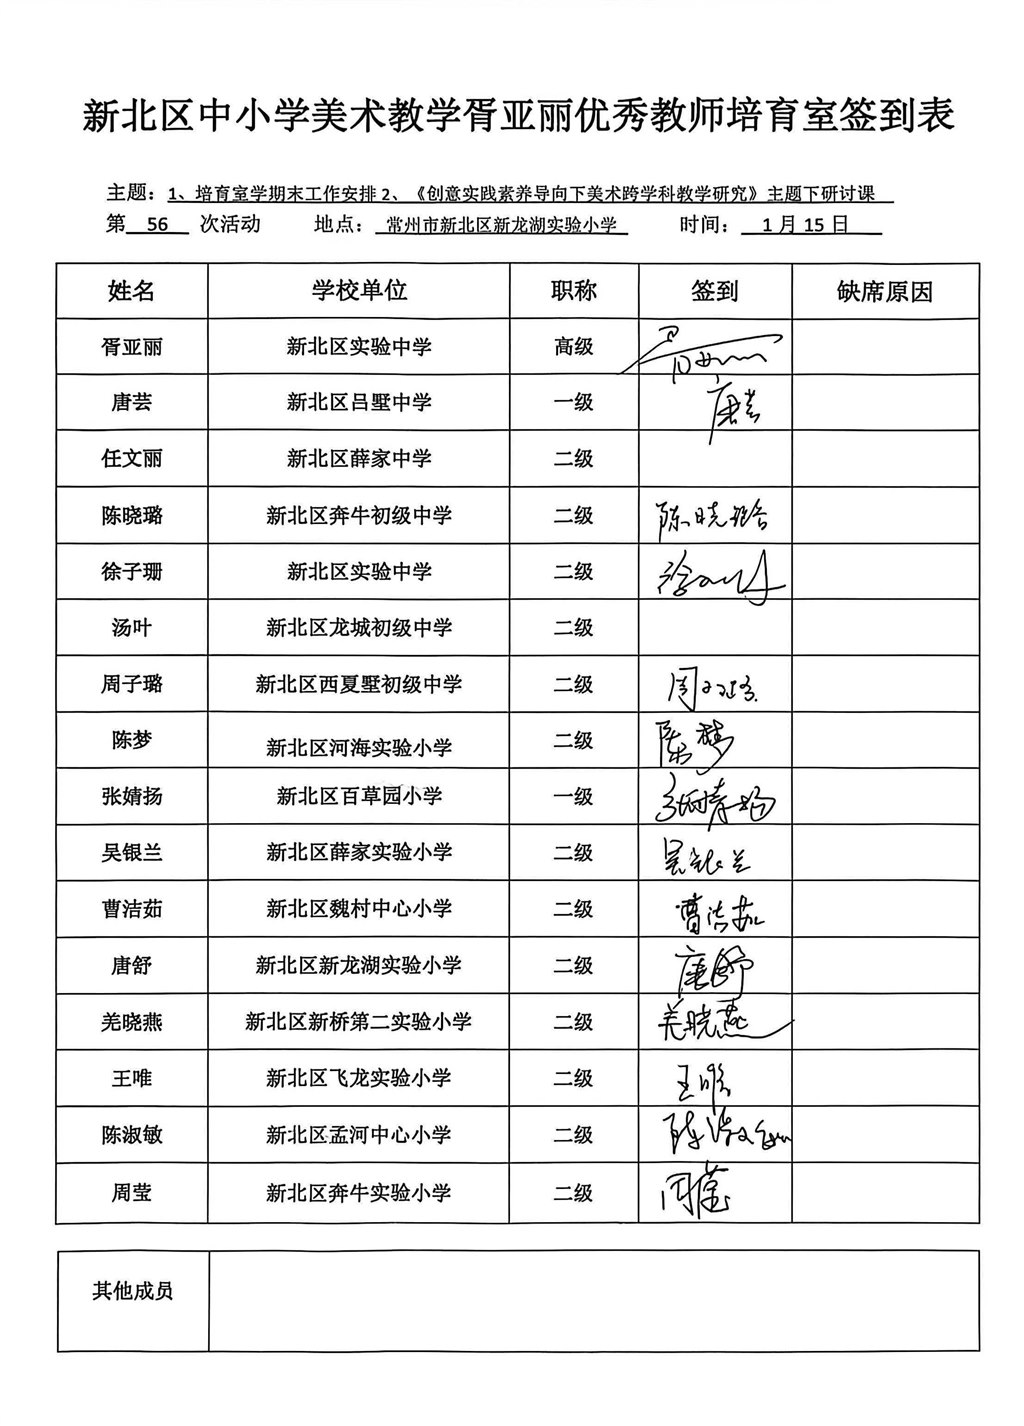 新北区中小学美术教学胥亚丽优秀教师培育室签到表
主题：1、培育室学期末工作安排2、《创意实践素养导向下美术跨学科教学研究》主题下研讨课
第 56 次活动 地点： 常州市新北区新龙湖实验小学 时间： 1月15日
姓名 学校单位 职称 签到 缺席原因
胥亚丽 新北区实验中学 高级
唐芸 新北区吕墅中学 一级 唐芸
任文丽 新北区薛家中学 二级
陈晓璐 新北区奔牛初级中学 二级 陈晓璐
徐子珊 新北区实验中学 二级 徐子珊
汤叶 新北区龙城初级中学 二级
周子璐 新北区西夏墅初级中学 二级 周子璐
陈梦 新北区河海实验小学 二级 陈梦
张婧扬 新北区百草园小学 一级 张婧扬
吴银兰 新北区薛家实验小学 二级 吴银兰
曹洁茹 新北区魏村中心小学 二级 曹洁茹
唐舒 新北区新龙湖实验小学 二级 唐舒
羌晓燕 新北区新桥第二实验小学 二级 羌晓燕
王唯 新北区飞龙实验小学 二级 王唯
陈淑敏 新北区孟河中心小学 二级 陈淑敏
周莹 新北区奔牛实验小学 二级 周莹
其他成员